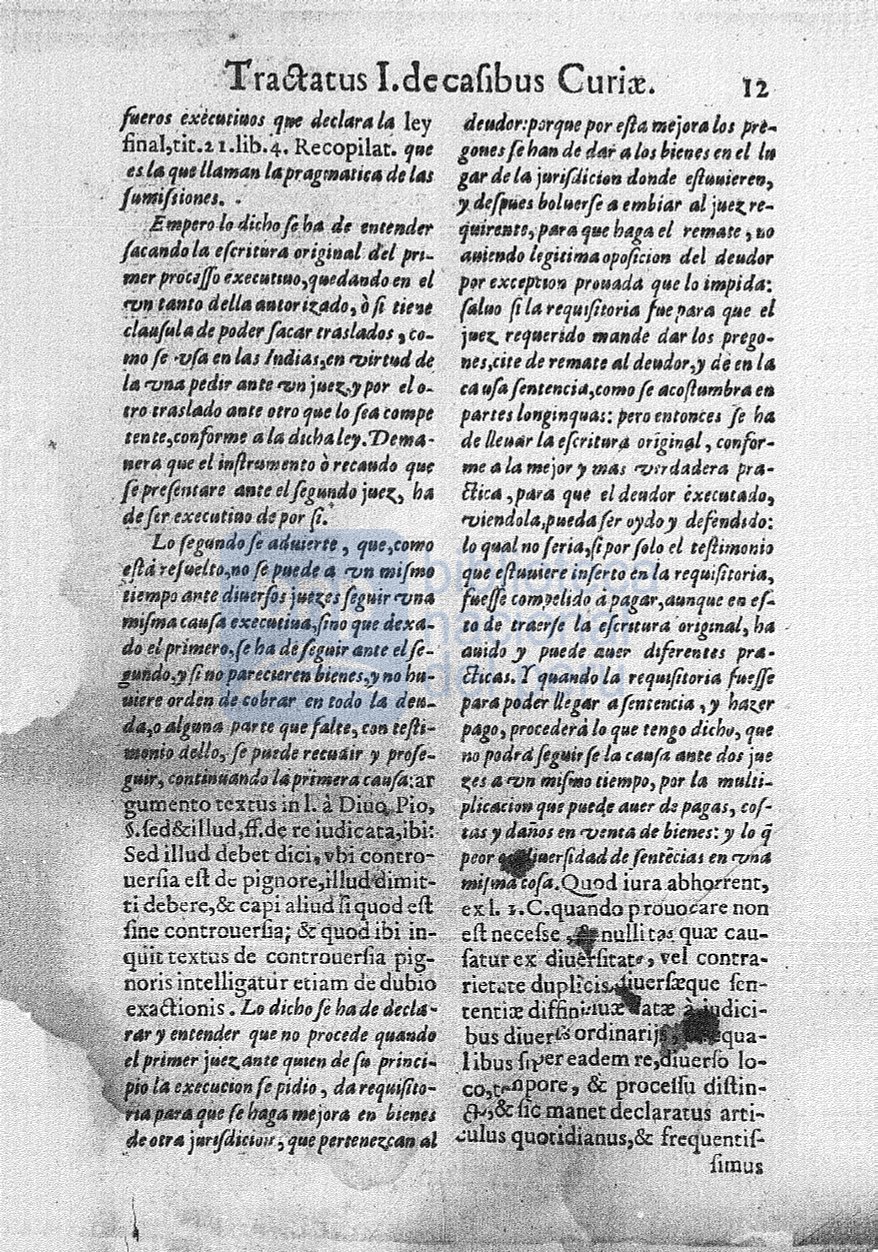 Tractatus I. de casibus Curiæ. 12
fueros executiuos que declara la ley
final, tit. 21. lib. 4. Recopilat. que
es la que llaman la pragmatica de las
sumissiones.
Empero lo dicho se ha de entender
sacando la escritura original del pri-
mer processo executiuo, quedando en el
vn tanto della autorizado, ò si tiene
clausula de poder sacar traslados, co-
mo se vsa en las Indias, en virtud de
la vna pedir ante vn juez, y por el o-
tro traslado ante otro que lo sea compe
tente, conforme a la dicha ley. Dema-
nera que el instrumento ò recaudo que
se presentare ante el segundo juez, ha
de ser executiuo de por si.
Lo segundo se aduierte, que, como
està resuelto, no se puede a vn mismo
tiempo ante diuersos juezes seguir vna
misma causa executiua, sino que dexa-
do el primero, se ha de seguir ante el se-
gundo. y si no parecieren bienes, y no hu-
uiere orden de cobrar en todo la deu-
da, o alguna parte que falte, con testi-
monio dello, se puede recudir y prose-
guir, continuando la primera causa: ar
gumento textus in l. à Diuo, Pio,
§. sed & illud, ff. de re iudicata, ibi:
Sed illud debet dici, vbi contro-
uersia est de pignore, illud dimit-
ti debere, & capi aliud si quod est
sine controuersia; & quod ibi in-
quit textus de controuersia pig-
noris intelligatur etiam de dubio
exactionis. Lo dicho se ha de decla-
rar y entender que no procede quando
el primer juez ante quien de su princi-
pio la execucion se pidio, da requisito-
ria para que se haga mejora en bienes
de otra jurisdicion, que pertenezcan al
deudor: porque por esta mejora los pre-
gones se han de dar a los bienes en el lu
gar de la jurisdicion donde estuuieren,
y despues boluerse a embiar al juez re-
quirente, para que haga el remate, no
auiendo legitima oposicion del deudor
por exception prouada que lo impida:
saluo si la requisitoria fue para que el
juez requerido mande dar los prego-
nes, cite de remate al deudor, y dè en la
causa sentencia, como se acostumbra en
partes longinquas: pero entonces se ha
de lleuar la escritura original, confor-
me a la mejor y mas verdadera pra-
ctica, para que el deudor executado,
viendola, pueda ser oydo y defendido:
lo qual no seria, si por solo el testimonio
que estuuiere inserto en la requisitoria,
fuesse compelido à pagar, aunque en es-
to de traerse la escritura original, ha
auido y puede auer diferentes pra-
cticas. Y quando la requisitoria fuesse
para poder llegar a sentencia, y hazer
pago, procederà lo que tengo dicho, que
no podrà seguirse la causa ante dos jue
zes a vn mismo tiempo, por la multi-
plicacion que puede auer de pagas, cos-
tas y daños en venta de bienes: y lo q̃
peor diuersidad de sentẽcias en vna
misma cosa. Quod iura abhorrent,
ex l. 1. C. quando prouocare non
est necesse, & nullitas quæ cau-
satur ex diuersitate, vel contra-
rietate duplicis, diuersæque sen-
tentiæ diffinitiuæ latæ à iudici-
bus diuersis ordinarijs, æqua-
libus super eadem re, diuerso lo-
co, tempore, & processu distin-
cto, & sic manet declaratus arti-
culus quotidianus, & frequentis-
simus
biblioteca
nacional
del perú